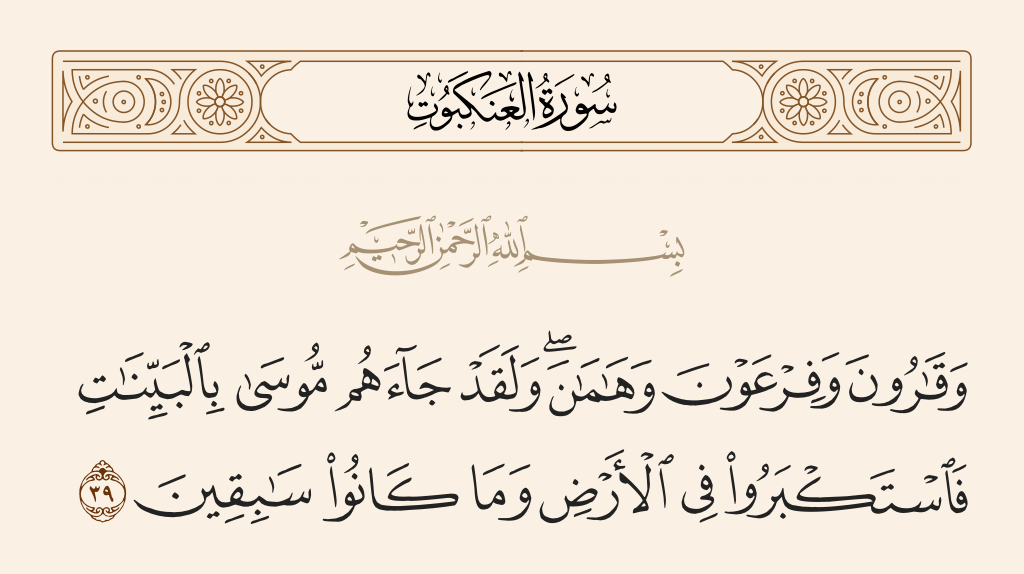 سُورَةُ العَنكَبُوتِ
بِسْمِ ٱللَّهِ ٱلرَّحْمَٰنِ ٱلرَّحِيمِ
وَقَٰرُونَ وَفِرْعَوْنَ وَهَٰمَٰنَۖ وَلَقَدْ جَآءَهُم مُّوسَىٰ بِٱلْبَيِّنَٰتِ
فَٱسْتَكْبَرُوا۟ فِى ٱلْأَرْضِ وَمَا كَانُوا۟ سَٰبِقِينَ ٣٩